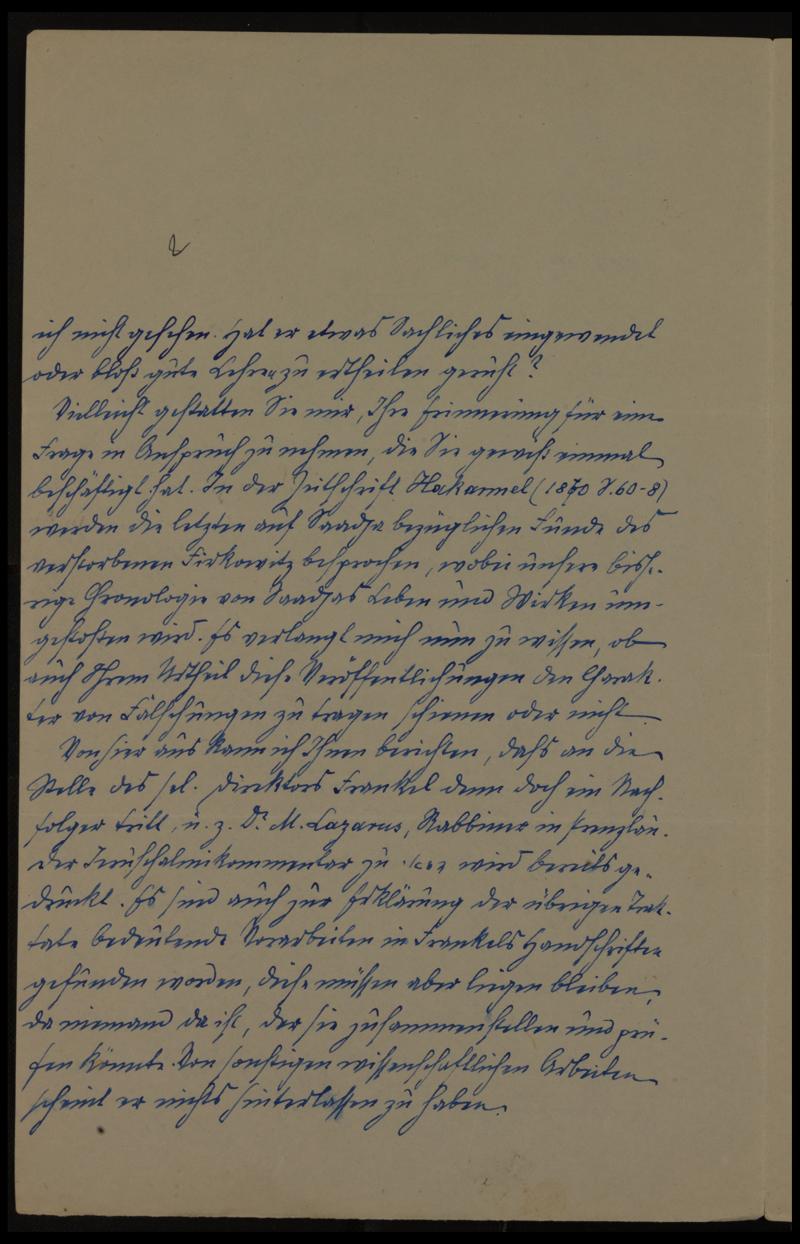 2
ich nicht gesehen. Hat er etwas Sachliches eingewendet
oder bloß gute Lehren zu ertheilen geruht?
Vielleicht gestatten Sie mir, Ihre Erinnerung für eine
Frage in Anspruch zu nehmen, die Sie gewiß einmal
beschäftigt hat. In der Zeitschrift Hakarmel (1870 S. 60-8)
werden die letzten auf Saadja bezüglichen Funde des
verstorbenen Firkowitz besprochen, wobei unsere bishe-
rige Chronologie von Saadjas Leben und Wirken um-
gestoßen wird. Es verlangt mich nun zu wissen, ob
nach Ihrem Urtheil diese Veröffentlichungen den Charak-
ter von Fälschungen zu tragen schienen oder nicht.
Von hier aus kann ich Ihnen berichten, daß an die
Stelle des sel. Direktors Frankel denn doch ein Nach-
folger tritt, u. z. Dr. M. Lazarus, Rabbiner in Prenzlau.
Der Jeruschalmikommentar zu wird bereits ge-
druckt. Es sind auch zur Erklärung der übrigen Trak-
tate bedeutende Vorarbeiten in Frankels Handschriften
gefunden worden, diese müssen aber liegen bleiben,
da niemand da ist, der sie zusammenstellen und prü-
fen könnte. Von sonstigen wissenschaftlichen Arbeiten
scheint er nichts hinterlassen zu haben.